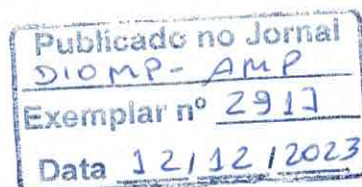 Publicado no Jornal
DIOMP - AMP
Exemplar nº 2917
Data 12/12/2023